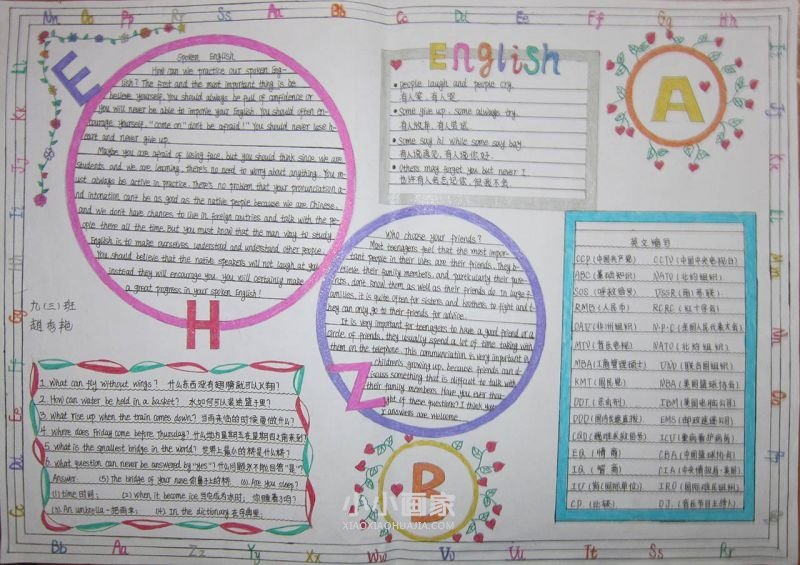 Nn Oo Pp Rr Ss Aa Bb Cc Dd Ee Ff Gg Hh
E
Spoken English
How can we practice our spoken Eng-
lish? The first and the most important thing is be
believe yourself. You should always be full of confidence or
you will never be able to improve your English. You should often en-
courage yourself, "come on" don't be afraid!" You should never lose h-
eart and never give up.
Maybe you are afraid of losing face, but you should think since we are
students and we are learning, there's no need to worry about anything. You m-
ust always be active in practice. There's no problem that your pronunciation a-
nd intonation can't be as good as the native people because we are Chinese,
and we don't have chances to live in foreign coutries and talk with the pe-
ople there all the time. But you must know that the main way to study
English is to make ourselves understand and understand other people.
You should believe that the native speakers will not laugh at you.
Instead they will encourage you. you will certainly make
a great progress in your spoken English!
H
九(三)班
English
people laugh and people cry.
有人笑,有人哭
Some give up, some always try.
有人放弃,有人尝试
Some say hi while some say bay
Others may forget you but never I.
也许有人会忘记你,但我不会.
A
Who choose your friends?
Most teenagers feel that the most impor-
tant people in their lives are their friends. They b-
elieve their family members, and particularly their pare-
nts, don't know them as well as their friends do. In large f-
amilies, it is quite often for sisters and brothers to fight and t-
hey can only go to their friends for advice.
It is very important for teenagers to have a good friend or a
circle of friends. they usually spend a lot of time talking with
them on the telephone. This communication is very important in
children's growing up, because friends can d-
iscuss something that is difficult to talk with
their family members.
of these questions? I think your
answers are welcome.
Z
英文缩写
CCP (中国共产党) CCTV (中国中央电视台)
ABC (基础知识) NATO (北约组织)
SOS (呼救信号) USSR (前苏联)
RMB (人民币) RCRC (红十字会)
OAU (非洲组织) N.P.C (全国人民代表大会)
MTV (音乐电视) NATO (北约组织)
MBA (工商管理硕士) UNO (联合国组织)
KMT (国民党) NBA (美国篮球协会)
DDT (杀虫剂) IBM (美国电脑公司)
DDD (国内长途直拨) EMS (邮政速递公司)
ICU (重病看护病房)
EQ (情商) CBA (中国篮球协会)
IQ (智商) CIA (中央情报局·美国)
IU (国际单位) IRO (国际难民组织)
CD (光碟) DJ (音乐节目主持人)
1. What can fly without wings? 什么东西没有翅膀就可以飞翔?
2. How can water be held in a basket? 水如何可以装进篮子里?
3. What rise up when the train comes down?
4. Where does Friday come before Thursday? 什么地方星期五在星期四之前来到?
5. what is the smallest bridge in the world? 世界上最小的桥是什么桥?
6. what question can never be answered by "yes"? 什么问题永不能回答"是"?
Answer: (5) The bridge of your nose 你鼻子上的桥 (6) Are you sleep?
(1) time 时间; (2) when it become ice 当它成为冰时, 你睡着了吗?
(3) An umbrella - 把雨伞; (4). In the dictionary 在字典里.
R
小小画家
XIAOXIAOHUAJIA.COM
Bb Aa Zz Yy Xx Ww Vv Uu Tt Ss Rr